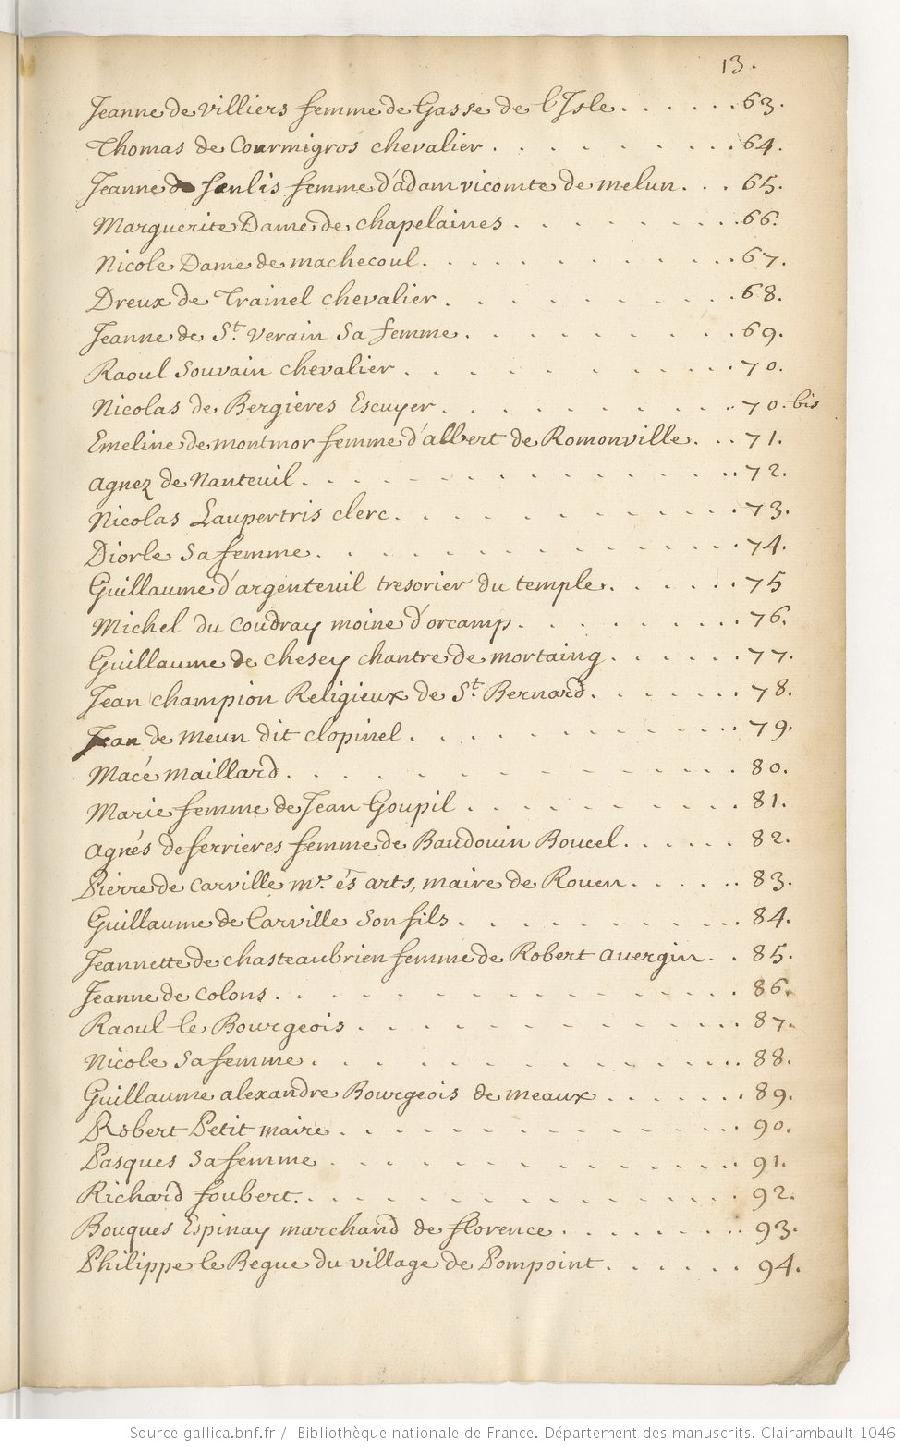 13.
Jeanne de villiers femme de Gasse de l'Isle . . . . . . 63.
Thomas de Courmigros chevalier . . . . . . . . . 64.
Jeanne de Senlis femme d'adam vicomte de melun . . . 65.
Marguerite Dame de chapelaines . . . . . . . . . 66.
Nicole Dame de machecoul . . . . . . . . . . . 67.
Dreux de Trainel chevalier . . . . . . . . . . 68.
Jeanne de St. Verain sa femme . . . . . . . . . 69.
Raoul Souvain chevalier . . . . . . . . . . . 70.
Nicolas de Bergieres Escuyer . . . . . . . . . . 70. bis
Emeline de montmor femme d'albert de Romonville . . . 71.
agnez de Nanteuil . . . . . . . . . . . . . . 72.
Nicolas Laupertris clerc . . . . . . . . . . . 73.
Diorle sa femme . . . . . . . . . . . . . . 74.
Guillaume d'argenteuil tresorier du temple . . . . . . 75
Michel du Coudray moine d'orcamp . . . . . . . . 76.
Guillaume de chesey chantre de mortaing . . . . . . 77.
Jean champion Religieux de St. Bernard . . . . . . . 78.
Jean de Meun dit clopinel . . . . . . . . . . . 79.
Macé maillard . . . . . . . . . . . . . . . 80.
Marie femme de Jean Goupil . . . . . . . . . . 81.
agnés de ferrieres femme de Baudouin Boucel . . . . . . 82.
Pierre de Carville mr. és arts, maire de Rouen . . . . . 83.
Guillaume de Carville son fils . . . . . . . . . . 84.
Jeannette de chasteaubrien femme de Robert avergin . . 85.
Jeanne de Colons . . . . . . . . . . . . . . 86.
Raoul le Bourgeois . . . . . . . . . . . . . 87.
Nicole sa femme . . . . . . . . . . . . . . 88.
Guillaume alexandre Bourgeois de meaux . . . . . . . 89.
Robert Petit maire . . . . . . . . . . . . . 90.
Pasques sa femme . . . . . . . . . . . . . . 91.
Richard foubert . . . . . . . . . . . . . . 92.
Bouques Espinay marchand de florence . . . . . . . . 93.
Philippe le Begue du village de Pompoint . . . . . . 94.
Source gallica.bnf.fr / Bibliothèque nationale de France. Département des manuscrits. Clairambault 1046